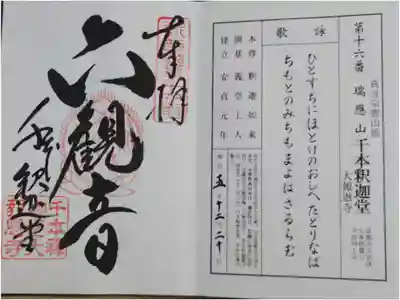 真言宗智山派
第十六番 瑞應山 千本釈迦堂
大報恩寺
詠歌
ひとすちにほとけのおしへたとりなは
ちもとのみちもまよはさるらむ
本尊 釈迦如来
開基 義空上人
建立 安貞元年
五 十二 二十
奉拝
六觀音
千本釈迦堂